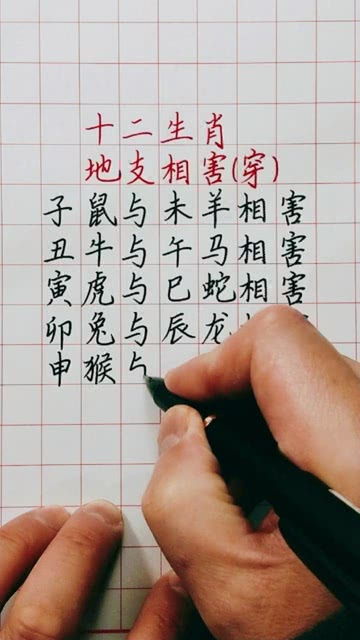 十二生肖
地支相害(穿)
子鼠与未羊相害
丑牛与午马相害
寅虎与巳蛇相害
卯兔与辰龙
申猴与